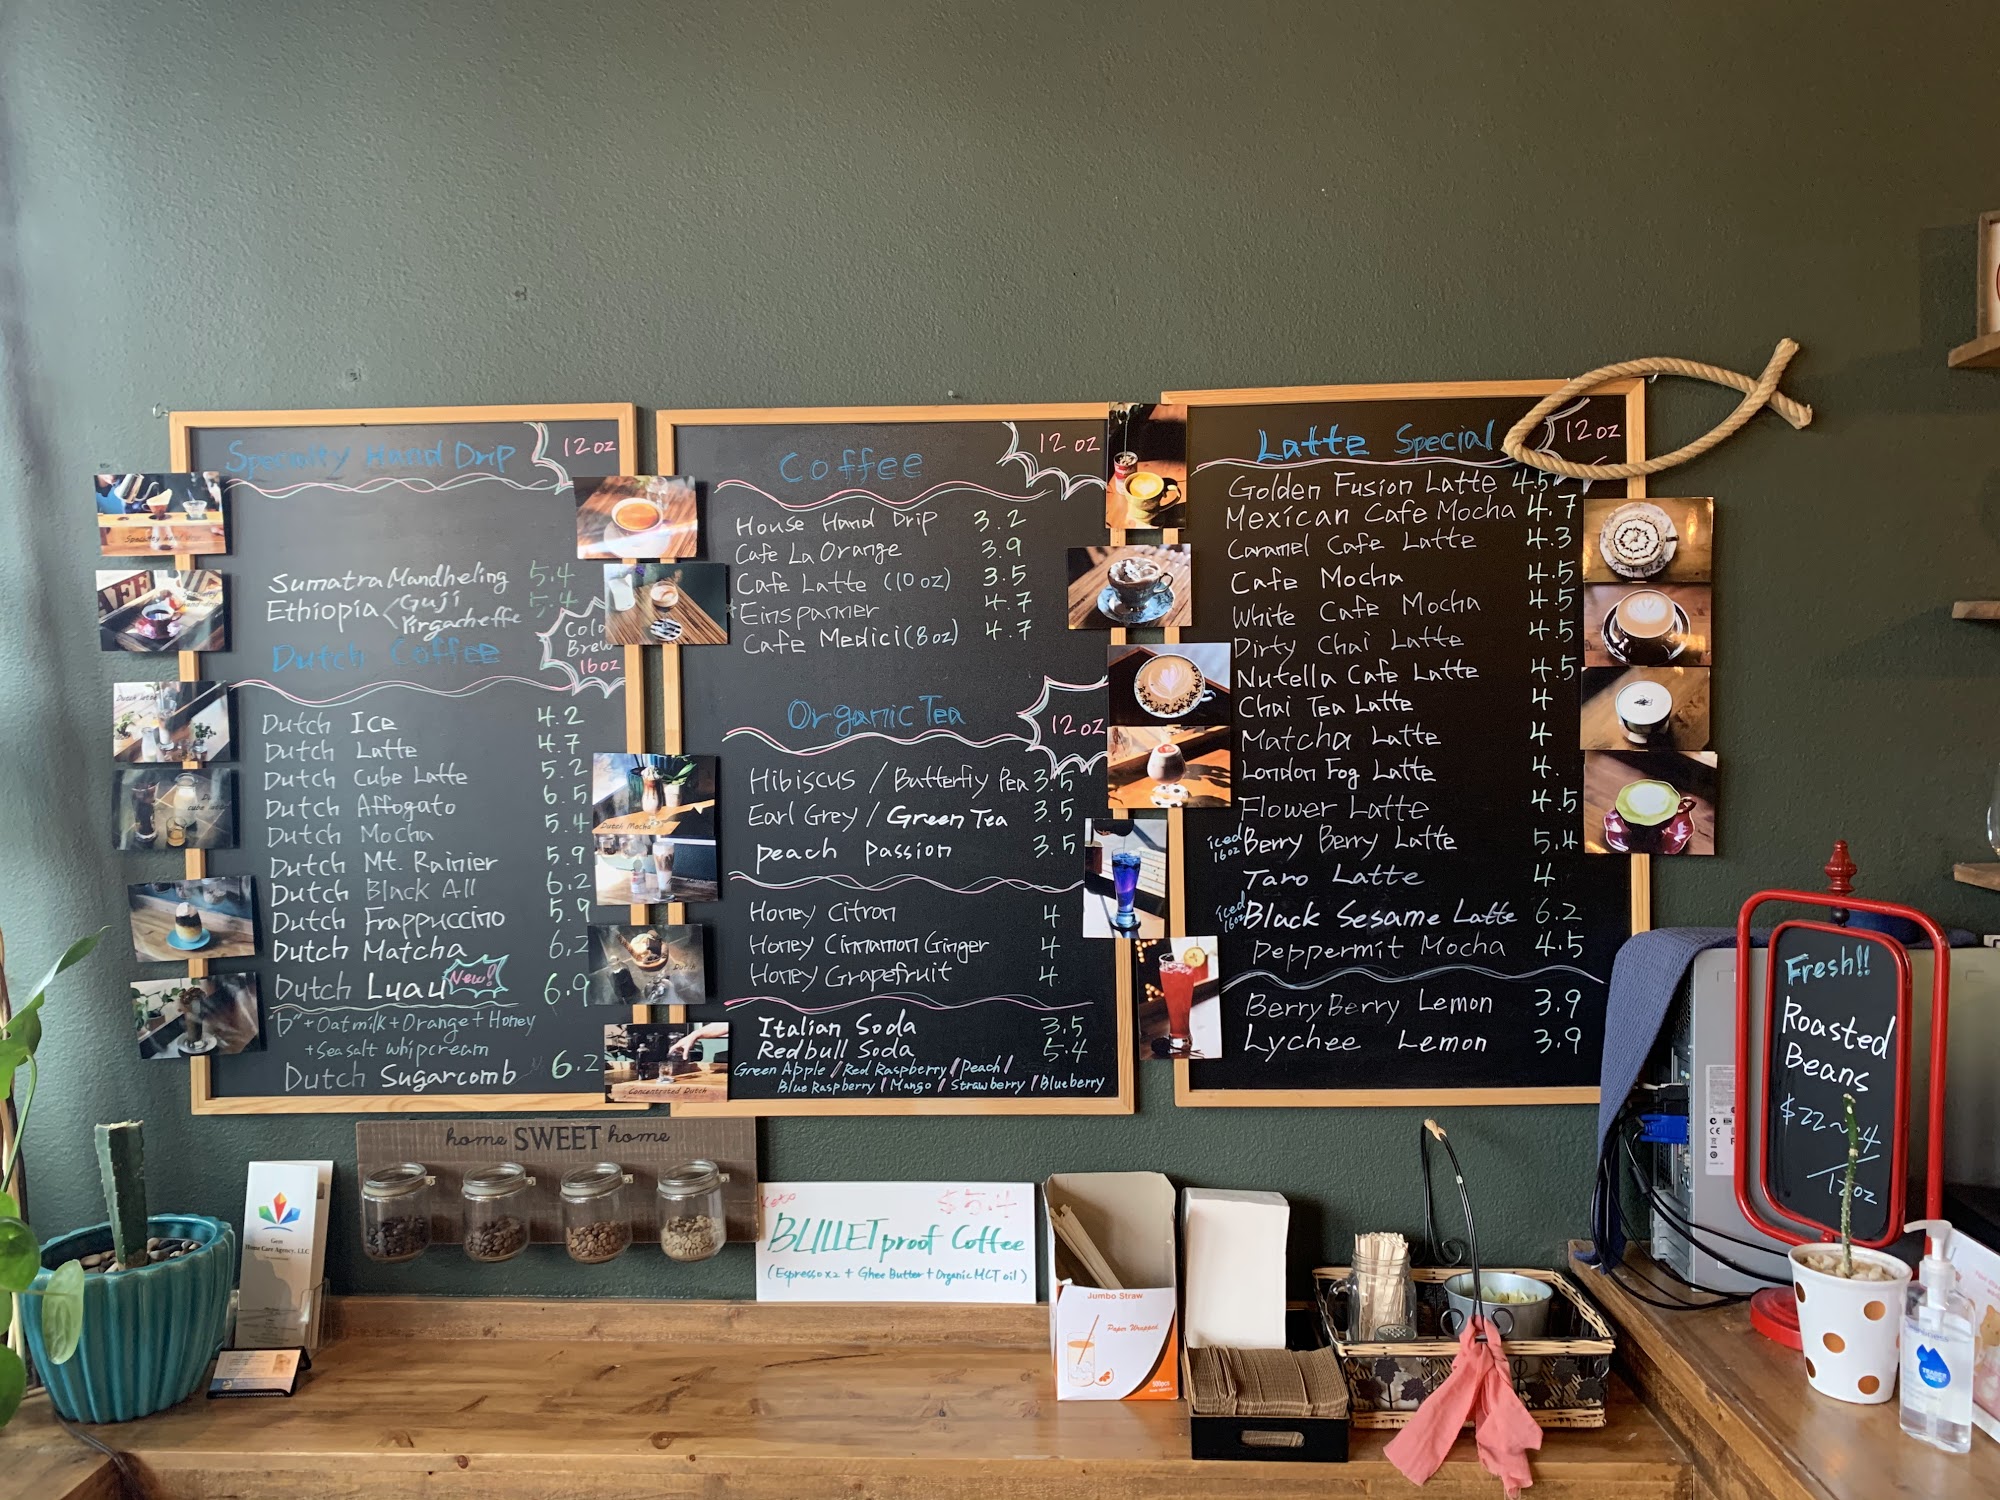 Specialty Hand Drip 12oz
Sumatra Mandheling 5.4
Ethiopia < Guji 5.4
Yirgacheffe
Dutch Coffee
Cold
Brew
16oz
Dutch Ice 4.2
Dutch Latte 4.7
Dutch Cube Latte 5.2
Dutch Affogato 6.5
Dutch Mocha 5.4
Dutch Mt. Rainier 5.9
Dutch Black All 6.2
Dutch Frappuccino 5.9
Dutch Matcha 6.2
Dutch Luau New! 6.9
"b" + Oatmilk + Orange + Honey
+ Seasalt whipcream
Dutch Sugarcomb 6.2
Coffee 12oz
House Hand Drip 3.2
Cafe La Orange 3.9
Cafe Latte (10oz) 3.5
Einspanner 4.7
Cafe Medici (8oz) 4.7
Organic Tea 12oz
Hibiscus / Butterfly Pea 3.5
Earl Grey / Green Tea 3.5
peach passion 3.5
Honey Citron 4
Honey Cinnamon Ginger 4
Honey Grapefruit 4
Italian Soda 3.5
Redbull Soda 5.4
Green Apple / Red Raspberry / Peach /
Blue Raspberry / Mango / Strawberry / Blueberry
Latte Special 12oz
Golden Fusion Latte 4.5
Mexican Cafe Mocha 4.7
Caramel Cafe Latte 4.3
Cafe Mocha 4.5
White Cafe Mocha 4.5
Dirty Chai Latte 4.5
Nutella Cafe Latte 4.5
Chai Tea Latte 4
Matcha Latte 4
London Fog Latte 4.
Flower Latte 4.5
iced 16oz Berry Berry Latte 5.4
Taro Latte 4
iced 16oz Black Sesame Latte 6.2
Peppermit Mocha 4.5
Berry Berry Lemon 3.9
Lychee Lemon 3.9
Specialty hand drip
Dutch latte
Dutch Mocha
Dutch
Concentrated Dutch
home SWEET home
Keto $5.4
BULLETproof Coffee
(Espresso x2 + Ghee Butter + Organic MCT oil)
Gem
Home Care Agency, LLC
Jumbo Straw
Paper Wrapped
Fresh!!
Roasted
Beans
12oz